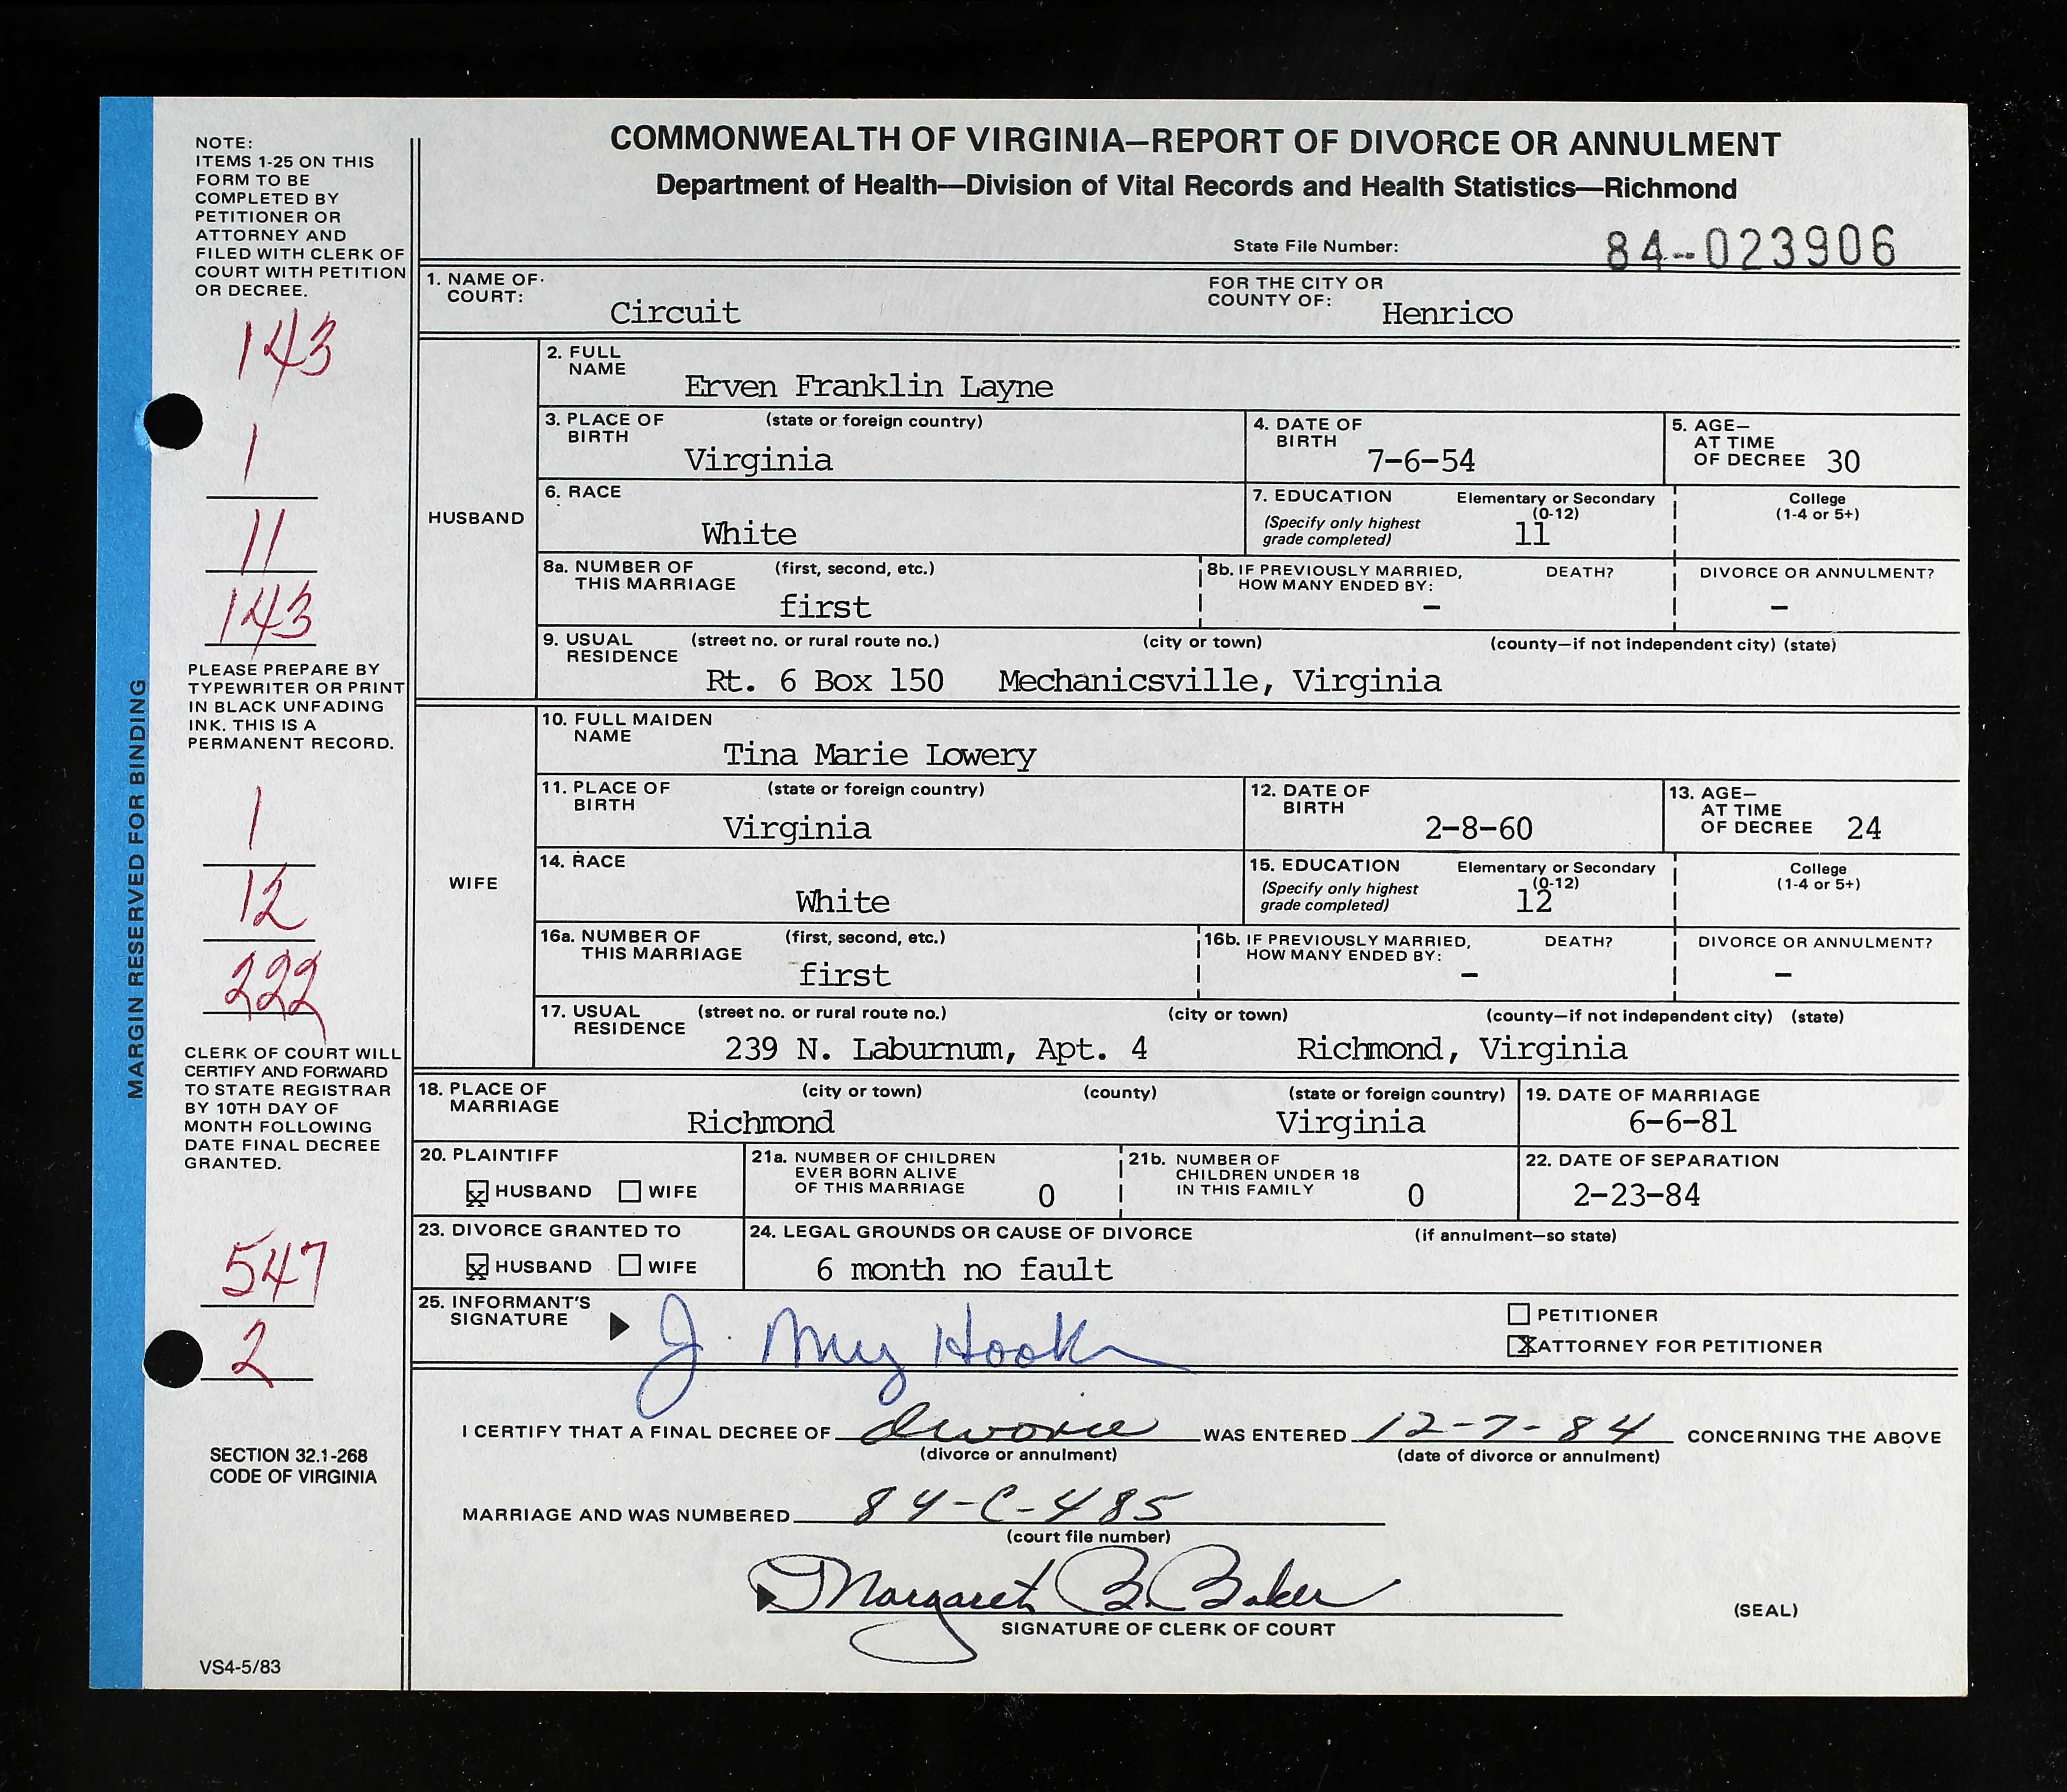 COMMONWEALTH OF VIRGINIA—REPORT OF DIVORCE OR ANNULMENT
Department of Health—Division of Vital Records and Health Statistics—Richmond
State File Number: 84-023906
NOTE:
ITEMS 1-25 ON THIS
FORM TO BE
COMPLETED BY
PETITIONER OR
ATTORNEY AND
FILED WITH CLERK OF
COURT WITH PETITION
OR DECREE.
143
1
11
143
PLEASE PREPARE BY
TYPEWRITER OR PRINT
IN BLACK UNFADING
INK. THIS IS A
PERMANENT RECORD.
1
12
222
CLERK OF COURT WILL
CERTIFY AND FORWARD
TO STATE REGISTRAR
BY 10TH DAY OF
MONTH FOLLOWING
DATE FINAL DECREE
GRANTED.
547
2
SECTION 32.1-268
CODE OF VIRGINIA
VS4-5/83
MARGIN RESERVED FOR BINDING
1. NAME OF COURT: Circuit FOR THE CITY OR COUNTY OF: Henrico
HUSBAND
2. FULL NAME Erven Franklin Layne
3. PLACE OF BIRTH (state or foreign country) Virginia
4. DATE OF BIRTH 7-6-54
5. AGE— AT TIME OF DECREE 30
6. RACE White
7. EDUCATION (Specify only highest grade completed) Elementary or Secondary (0-12) 11 College (1-4 or 5+)
8a. NUMBER OF THIS MARRIAGE (first, second, etc.) first
8b. IF PREVIOUSLY MARRIED, HOW MANY ENDED BY: DEATH? – DIVORCE OR ANNULMENT? –
9. USUAL RESIDENCE (street no. or rural route no.) (city or town) (county—if not independent city) (state)
Rt. 6 Box 150 Mechanicsville, Virginia
WIFE
10. FULL MAIDEN NAME Tina Marie Lowery
11. PLACE OF BIRTH (state or foreign country) Virginia
12. DATE OF BIRTH 2-8-60
13. AGE— AT TIME OF DECREE 24
14. RACE White
15. EDUCATION (Specify only highest grade completed) Elementary or Secondary (0-12) 12 College (1-4 or 5+)
16a. NUMBER OF THIS MARRIAGE (first, second, etc.) first
16b. IF PREVIOUSLY MARRIED, HOW MANY ENDED BY: DEATH? – DIVORCE OR ANNULMENT? –
17. USUAL RESIDENCE (street no. or rural route no.) (city or town) (county—if not independent city) (state)
239 N. Laburnum, Apt. 4 Richmond, Virginia
18. PLACE OF MARRIAGE (city or town) (county) (state or foreign country) Richmond Virginia
19. DATE OF MARRIAGE 6-6-81
20. PLAINTIFF x HUSBAND WIFE
21a. NUMBER OF CHILDREN EVER BORN ALIVE OF THIS MARRIAGE 0
21b. NUMBER OF CHILDREN UNDER 18 IN THIS FAMILY 0
22. DATE OF SEPARATION 2-23-84
23. DIVORCE GRANTED TO x HUSBAND WIFE
24. LEGAL GROUNDS OR CAUSE OF DIVORCE (if annulment—so state) 6 month no fault
25. INFORMANT'S SIGNATURE J.
PETITIONER
X ATTORNEY FOR PETITIONER
I CERTIFY THAT A FINAL DECREE OF divorce WAS ENTERED 12-7-84 CONCERNING THE ABOVE
(divorce or annulment) (date of divorce or annulment)
MARRIAGE AND WAS NUMBERED 84-C-485
(court file number)
Margaret B. Baker
SIGNATURE OF CLERK OF COURT
(SEAL)